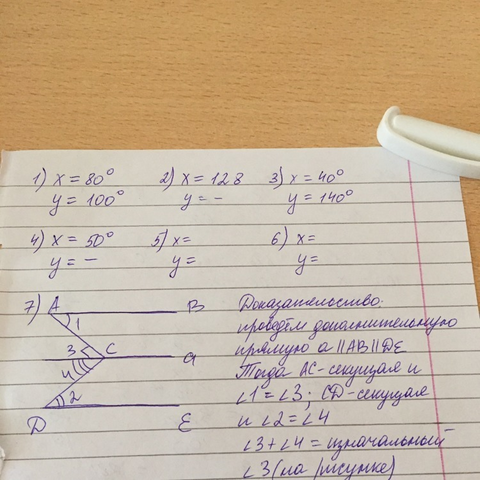 1) x = 80° 2) x = 128 3) x = 40°
y = 100° y = - y = 140°
4) x = 50° 5) x= 6) x=
y = - y = y=
7) A B
1
3 C a
4
2
D E
Доказательство.
проведём дополнительную
прямую a || AB || DE
Тогда AC-секущая и
∠1 = ∠3; CD-секущая
и ∠2 = ∠4
∠3 + ∠4 = изначальный
∠3 (на рисунке)